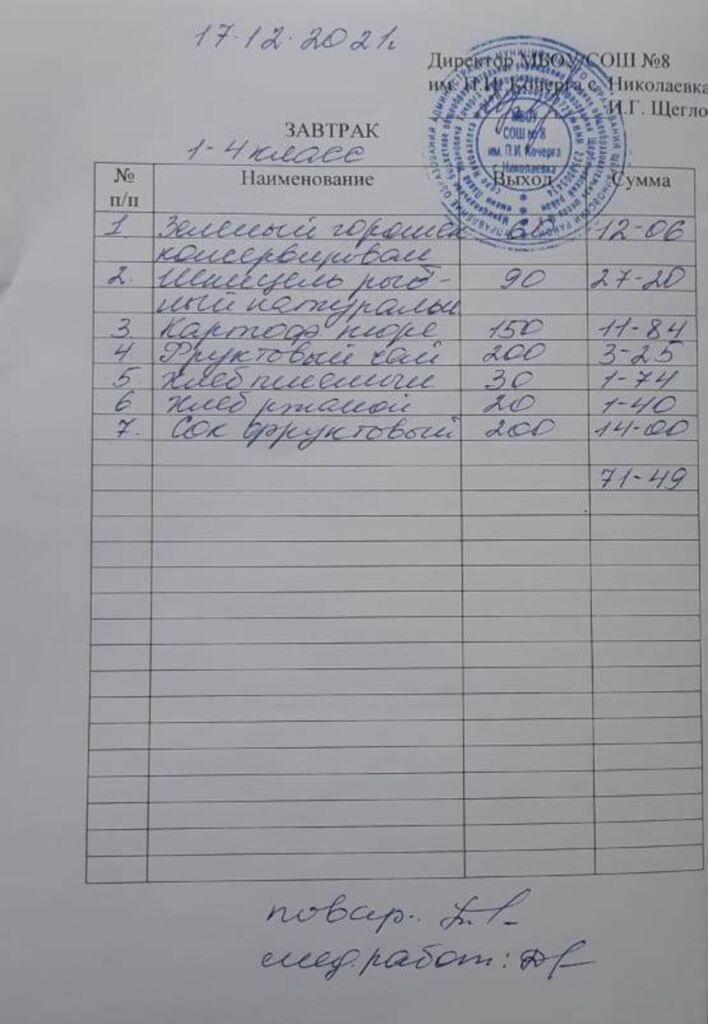 17.12.2021г
Директор МБОУ СОШ №8
им. П.И. Кочерга с. Николаевка
И.Г. Щегло
МБОУ
СОШ № 8
им. П.И. Кочерга
с. Николаевка
ЗАВТРАК
1-4 класс
№ п/п Наименование Выход Сумма
1. Зеленый горошек 60 12-06
консервирован
2. Шницель рыб- 90 27-20
ный натуральн
3 Картоф пюре 150 11-84
4 Фруктовый чай 200 3-25
5. Хлеб пшеничн 30 1-74
6 Хлеб ржаной 20 1-40
7. Сок фруктовый 200 14-00
71-49
повар:
мед.работ: